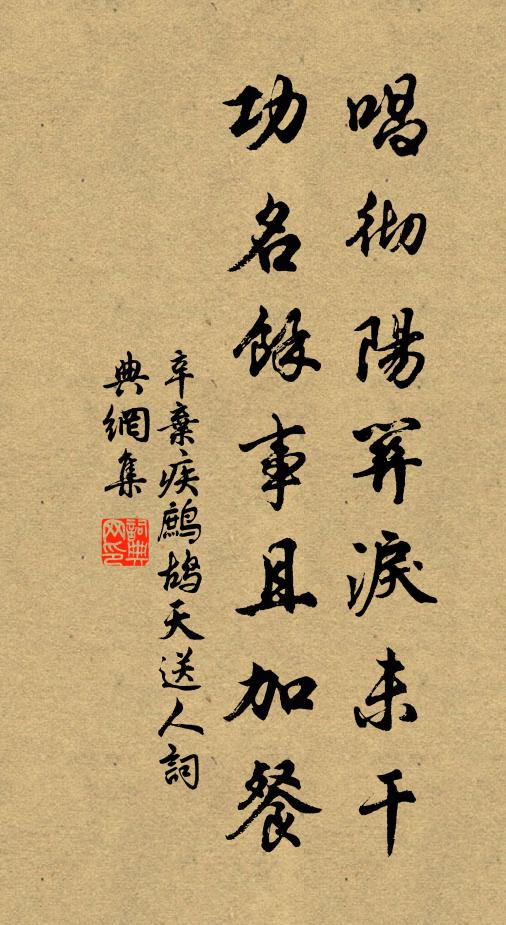 唱徹陽關淚未干
功名餘事且加餐
辛棄疾鷓鴣天送人詞
典網集
詞典網印